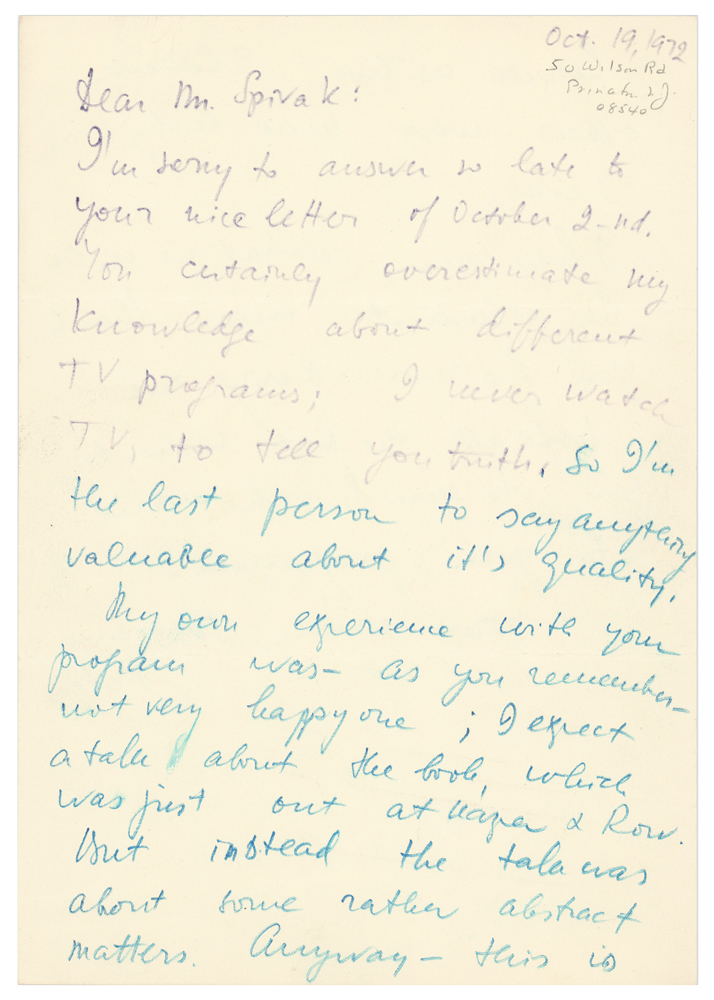 Oct. 19, 1972
50 Wilson Rd
Princeton N.J.
08540
Dear Mr. Spivak:
I'm sorry to answer so late to
your nice letter of October 2-nd.
You certainly overestimate my
knowledge about different
TV programs; I never watch
TV, to tell you truth. So I'm
the last person to say anything
valuable about it's quality.
My own experience with your
program was – as you remember –
not very happy one ; I expect
a talk about the book, which
was just out at Harper & Row.
But instead the talk was
about some rather abstract
matters. Anyway – this is